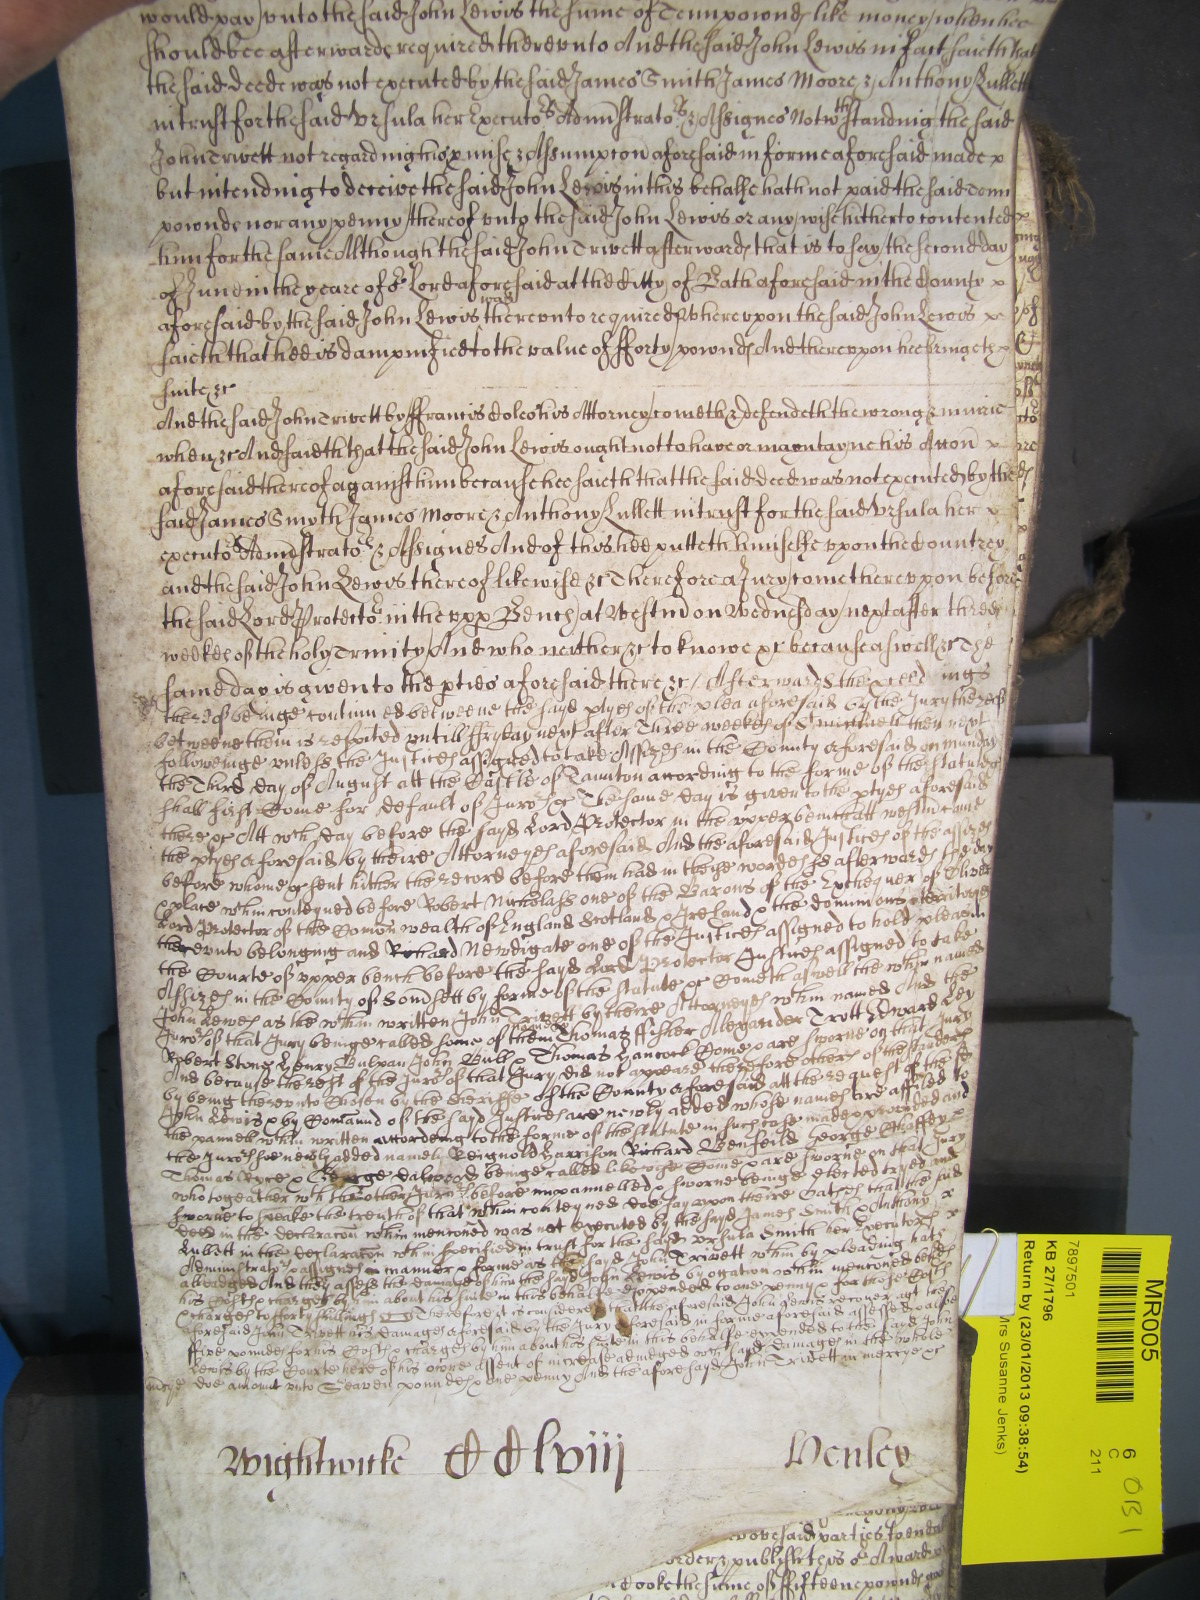 would pay unto the said John Lewis the sume of Tenn pownds like money when hee
should bee afterwards required thereunto And the said John Lewis in fact saieth that
the said deede was not executed by the said James Smith James Moore & Anthony Cullett
in trust for the said Ursula her Executors Admistrators & Assignes Notwthstanding the said
John Trivett not regarding his pmise & Assumpcon aforesaid in forme aforesaid made
but intending to deceive the said John Lewis in this behalfe hath not paid the said Tenn
pownds nor any penny thereof unto the said John Lewis or any wise hitherto contented
him for the same Although the said John Trivett afterwards that is to say the second day
of June in the yeare of or Lord aforesaid at the Citty of Bath aforesaid in the County
aforesaid by the said John Lewis was thereunto required Whereupon the said John Lewis
saieth that hee is dampnified to the value of fforty pownds And thereupon hee bringeth
suite &c
And the said John Trivett by ffrancis Coles his Attorney cometh & defendeth the wrong & iniurie
when &c And saieth that the said John Lewis ought not to have or mayntayne his Accon
aforesaid thereof against him because hee saieth that the said deed was not executed by the
said James Smyth James Moore & Anthony Cullett in trust for the said Ursula her
executors Admistrators & Assignes And of this hee putteth himselfe uppon the Countrey
and the said John Lewis thereof likewise &c Therefore a Jury come thereuppon before
the said Lord Protector in the upp Bench at Westm on Wednesday next after three
weekes of the holy Trinity And who neither &c to knowe &c because aswell &c The
same day is given to the pties aforesaid there &c / Afterwards the pceedings
thereof beinge continued betweene the sayd ptyes of the plea aforesaid by the Jury thereof
betweene them is respited untill ffryday next after Three weekes of St Michaell then next
followeinge unless the Justices assigned to take Assizes in the County aforesaid on munday
the Third day of August att the Castle of Taunton according to the forme of the statute
shall first Come for default of Jurors &c The same day is given to the ptyes aforesaid
there &c Att wch day before the sayd Lord Protector in the upper bench att westm came
the ptyes aforesaid by theire Attorneyes aforesaid And the aforesaid Justices of the assizes
before whome &c sent hither the record before them had in these wordes ss afterwards the day
& place wthin conteyned before Robert Nicholas one of the Barons of the Exchequer of Oliver
Lord Protector of the Comon wealth of England Scotland & Ireland & the dominions & territoryes
thereunto belonging and Richard Newdigate one of the Justices assigned to hold pleas in
the Courte of upper bench before the sayd Lord Protector Justices assigned to take
Assizes in the County of Somsett by forme of the statute &c Cometh aswell the wthin named
John Lewes as the wthin written John Trivett by theire Attorneyes wthin named And the
Jurors of that Jury beinge called some of them namely Thomas ffisher Alexander Trott Edward Ley
Robert Stone Henry Bulpan John Bull & Thomas Hancock Come & are sworne on that Jury
And because the rest of the Jurors of that Jury did not appeare therefore others of the standers
by being thereunto Chosen by the Sheriffe of the County aforesaid att the request of the sd
John Lewis & by Comaund of the sayd Justices are newly added whose names are affiled to
the pannell wthin written accordeing to the forme of the statute in such case made & provided and
the Jurors soe newly added namely Reignold Harrison Richard Benfeild George
Thomas & George beinge called likewise Come & are sworne on that Jury
who togeather wth the other Jurors before impannelled & sworne beinge elected tryed and
sworne to speake the trueth of that wthin conteyned doe say upon theire Oathes that the said
deed in the declaracon wthin mentioned was not executed by the sayd James Smith & Anthony
Cullett in the declaracon wthin specified in trust for the sayd Ursula Smith her Executors
Administrators & assignes in manner & forme as the sayd John Trivett wthin by pleading hath
alleadged And they assess the damages of him the sayd John Lewis by occasion wthin mentioned besides
his Costs & charges by him about his suite in this behalfe expended to one penny & for those Costs
& charges to forty shillings Therefore it is considered that the aforesaid John Lewis recover agt the
aforesaid John Trivett his damages aforesaid by the Jury aforesaid in forme aforesaid assessed & alsoe
ffive pounds for his Costs & charges by him about his suite in this behalfe expended to the said John
Lewis by the Courte here of his owne assent of increase adiudged wch sayd damages in the whole
doe amount unto Seaven pounds & one penny And the aforesayd John Trivett in mercye &c
Wightwicke CClviii Henley
aforesaid parties to end
order & publish this or Award
tooke the sume of fifteene pownds
MR005
7897501
KB 27/1796
Return by (23/01/2013 09:38:54)
Mrs Susanne Jenks)
6
C
211
OB 1